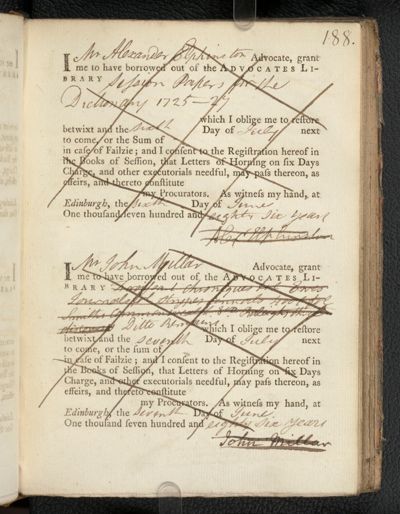 188.
I Mr Alexander Elphinston Advocate, grant
me to have borrowed out of the ADVOCATES LI-
BRARY Session Papers for the
Dictionary 1725-27
which I oblige me to restore
betwixt and the sixth Day of July next
to come, or the Sum of
in case of Failzie; and I consent to the Registration hereof in
the Books of Session, that Letters of Horning on six Days
Charge, and other executorials needful, may pass thereon, as
effeirs, and thereto constitute
my Procurators. As witness my hand, at
Edinburgh, the sixth Day of June
One thousand seven hundred and eighty six years
Alexr Elphinston
I Mr John Millar Advocate, grant
me to have borrowed out of the ADVOCATES LI-
BRARY
Ditto
which I oblige me to restore
betwixt and the seventh Day of July next
to come, or the sum of
in case of Failzie; and I consent to the Registration hereof in
the Books of Session, that Letters of Horning on six Days
Charge, and other executorials needful, may pass thereon, as
effeirs, and thereto constitute
my Procurators. As witness my hand, at
Edinburgh, the seventh Day of June
One thousand seven hundred and eighty six years
John Millar